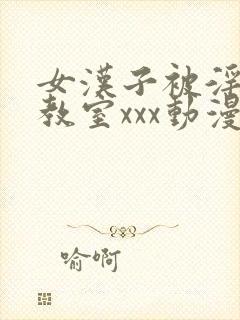 女漢子被淫
教室xxx動漫
喻啊